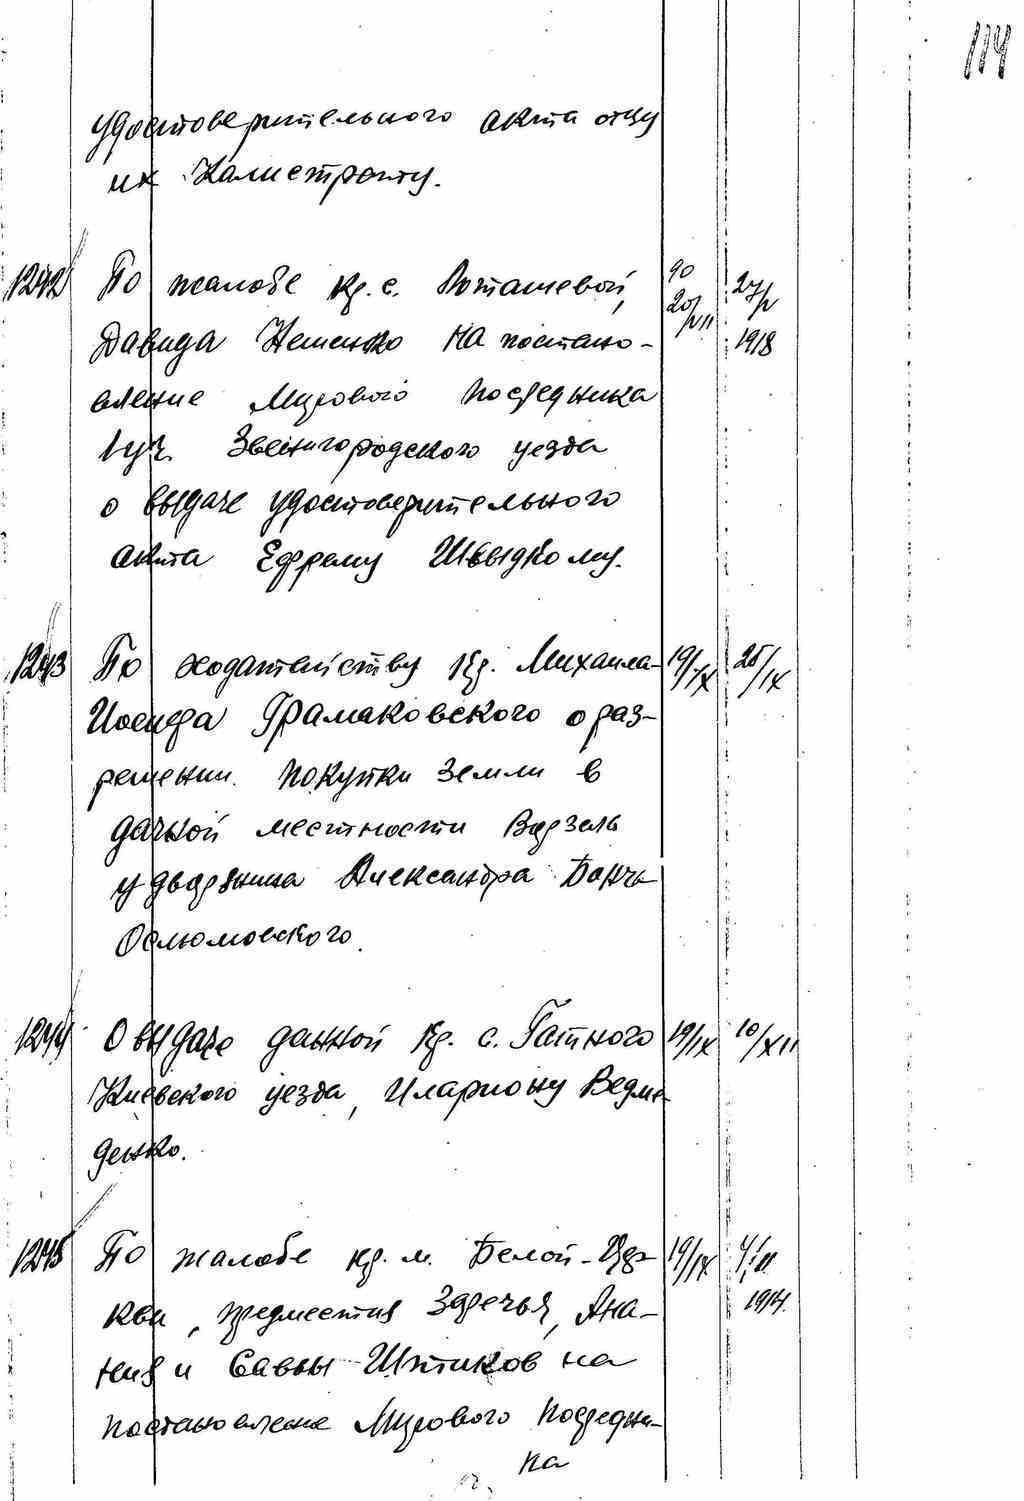 114
удостоверительного акта отцу
их Калистрату.
1242 По жалобе кр. с. Поташевой, 90 20/VII 27/V
Давида Нещенко на постано- 1918
вление Мирового Посредника
1 уч. Звенигородского уезда
о выдаче удостоверительного
акта Ефрему Швыдкому.
1243 По ходатайству кр. Михаила- 19/IX 25/IX
Иосифа Грамаковского о раз-
решении покупки земли в
дачной местности Ворзель
у дворянина Александра Бонч-
Осмоловского.
1244 О выдаче данной кр. с. Гатного 19/IX 10/XII
Киевского уезда, Илариону Ведме-
денко.
1245 По жалобе кр. м. Белой-Цер- 19/IX
кви, предместия Заречья, Ана- 1914.
ния и Саввы Шпиков на
постановление Мирового Посредни-
ка